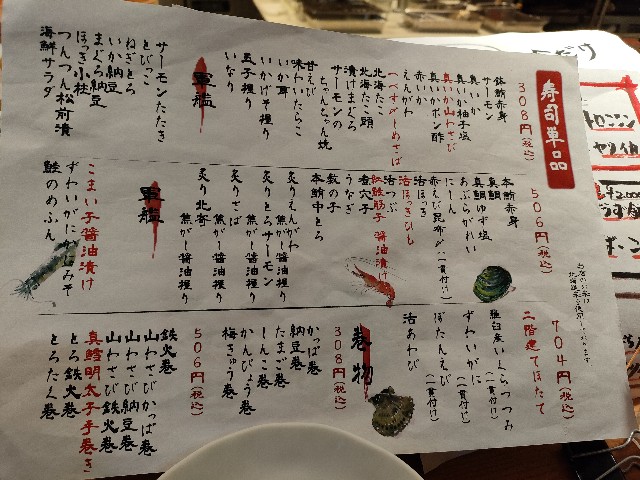 寿司単品
308円(税込)
鉢鮪赤身
サーモン
真いか
真いか柚子塩
真いか山わさび
真いかポン酢
赤いか
えんがわ
つべすがしめさば
北海たこ
北海たこ頭
漬けまぐろ
サーモンの
ちゃんちゃん焼
甘えび
味わいたらこ
いか耳
いかげそ握り
玉子握り
いなり
軍艦
サーモンたたき
とびっこ
ねぎとろ
いか納豆
まぐろ納豆
ほっき小柱
つんつん松前漬
海鮮サラダ
506円(税込)
本鮪赤身
真鯛
真鯛ゆず塩
あぶらがれい
にしん
赤えび昆布〆(一貫付け)
活ほっき
活ほっきひも
活つぶ
紅鮭筋子醤油漬け
煮穴子
うなぎ
数の子
本鮪中とろ
炙りえんがわ
焦がし醤油握り
炙りとろサーモン
焦がし醤油握り
炙りさば
焦がし醤油握り
炙り北寄
焦がし醤油握り
軍艦
こまい子醤油漬け
ずわいがにかにみそ
鮭のめふん
704円(税込)
二階建てほたて
羅臼産いくらつつみ
(一貫付け)
ずわいがに
(一貫付け)
ぼたんえび
(一貫付け)
活あわび
巻物
308円(税込)
かっぱ巻
納豆巻
たまご巻
しんこ巻
かんぴょう巻
梅きゅう巻
506円(税込)
鉄火巻
山わさびかっぱ巻
山わさび納豆巻
山わさび鉄火巻
真鱈明太子手巻き
とろ鉄火巻
とろたく巻